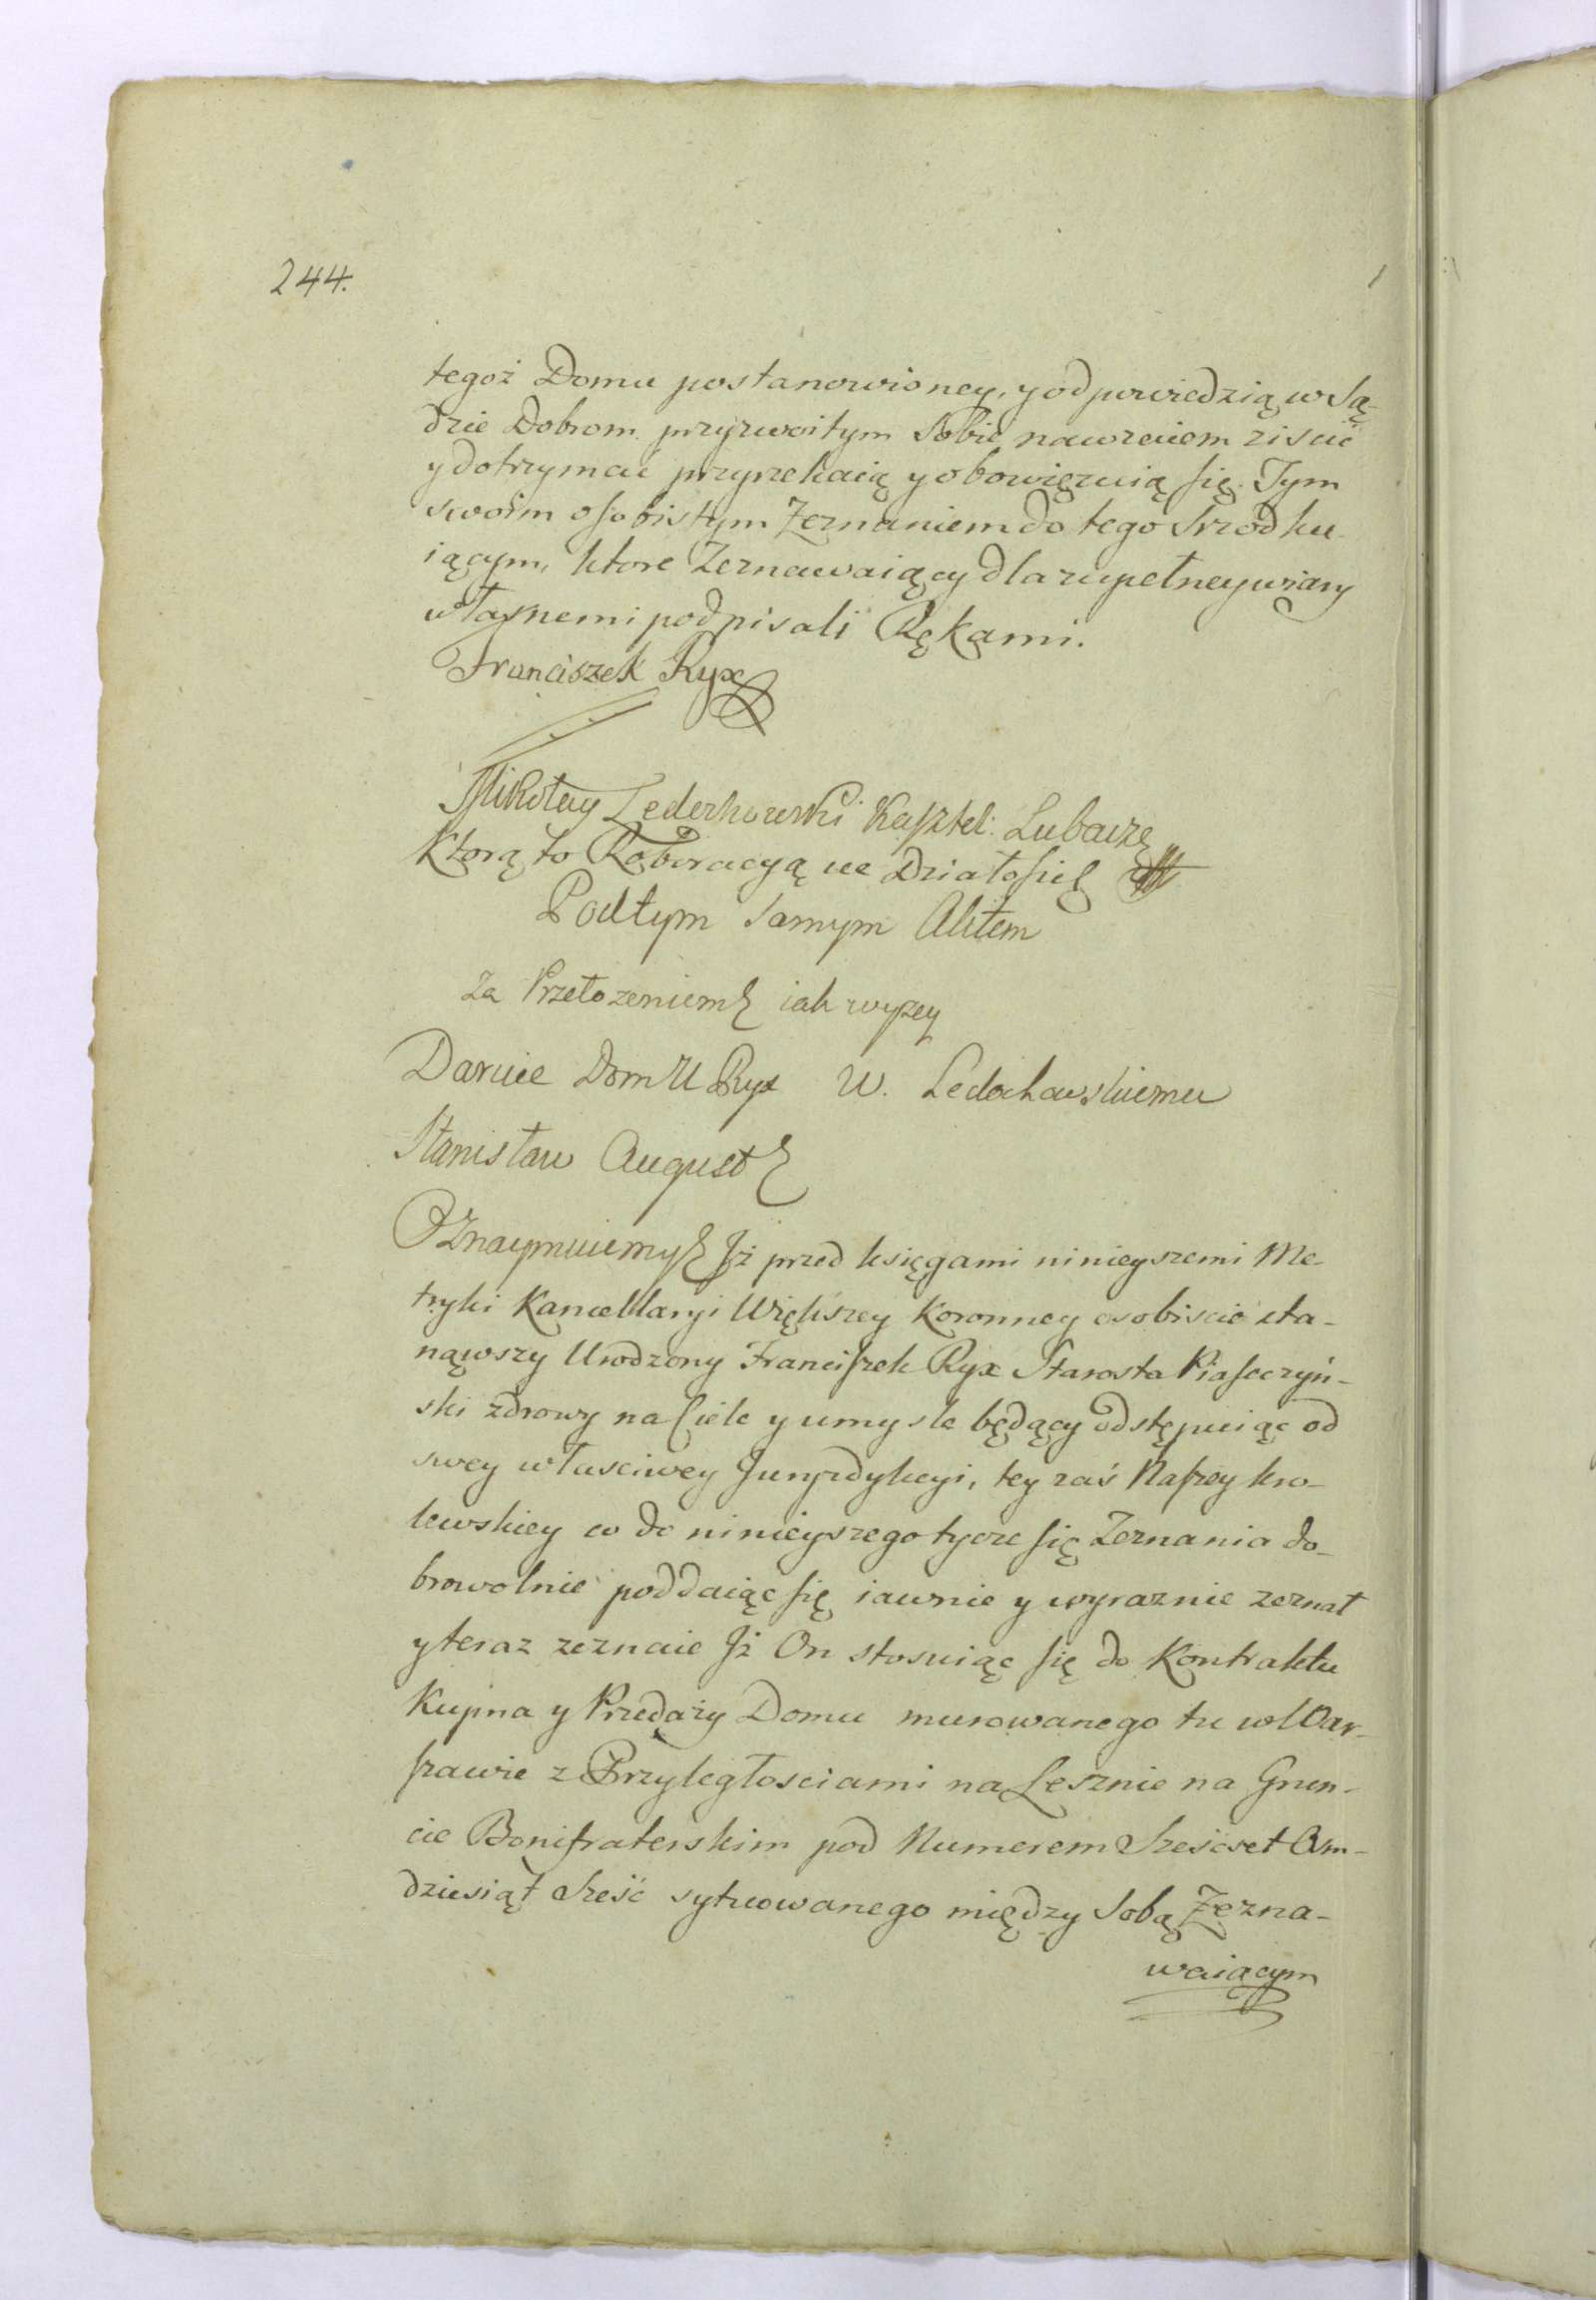 244.
tegoż Domu postanowioney, y odpowiedzią w Są-
dzie Dobrom przyzwoitym Sobie nawzaiem ziscić
y dotrzymać przyrzekaią y obowięzuią się. Tym
swoim osobistym Zeznaniem do tego srzodku-
iącym, ktore Zeznawaiący dla zupełney wiary
własnemi podpisali Rękami.
Franciszek Ryx
Mikołay Ledochowski Kasztel: Lubacze
Ktorą to Roboracyą ue Działo się
Pod tym samym Aktem
Za Przełożeniem iak wyzey
Daruie Dom U Ryx W. Ledochowskiemu
Stanisław August
Oznaymuiemy Jż przed księgami ninieyszemi Me-
tryki Kancellaryi Większey Koronney osobiscie sta-
nąwszy Urodzony Franciszek Ryx Starosta Piaseczyń-
ski zdrowy na Ciele y umysle będący odstępuiąc od
swey własciwey Juryzdykcyi, tey zaś Naszey kro-
lewskiey co do ninieyszego tycze się Zeznania do-
browolnie poddaiąc się iawnie y wyraznie zeznał
y teraz zeznaie Jż On stosuiąc się do Kontraktu
Kupna y Przedaży Domu murowanego tu w War-
szawie z Przyległosciami na Lesznie na Grun-
cie Bonifraterskim pod Numerem Sześćset Osm-
dziesiąt Sześć sytuowanego między Sobą Zezna-
waiącym